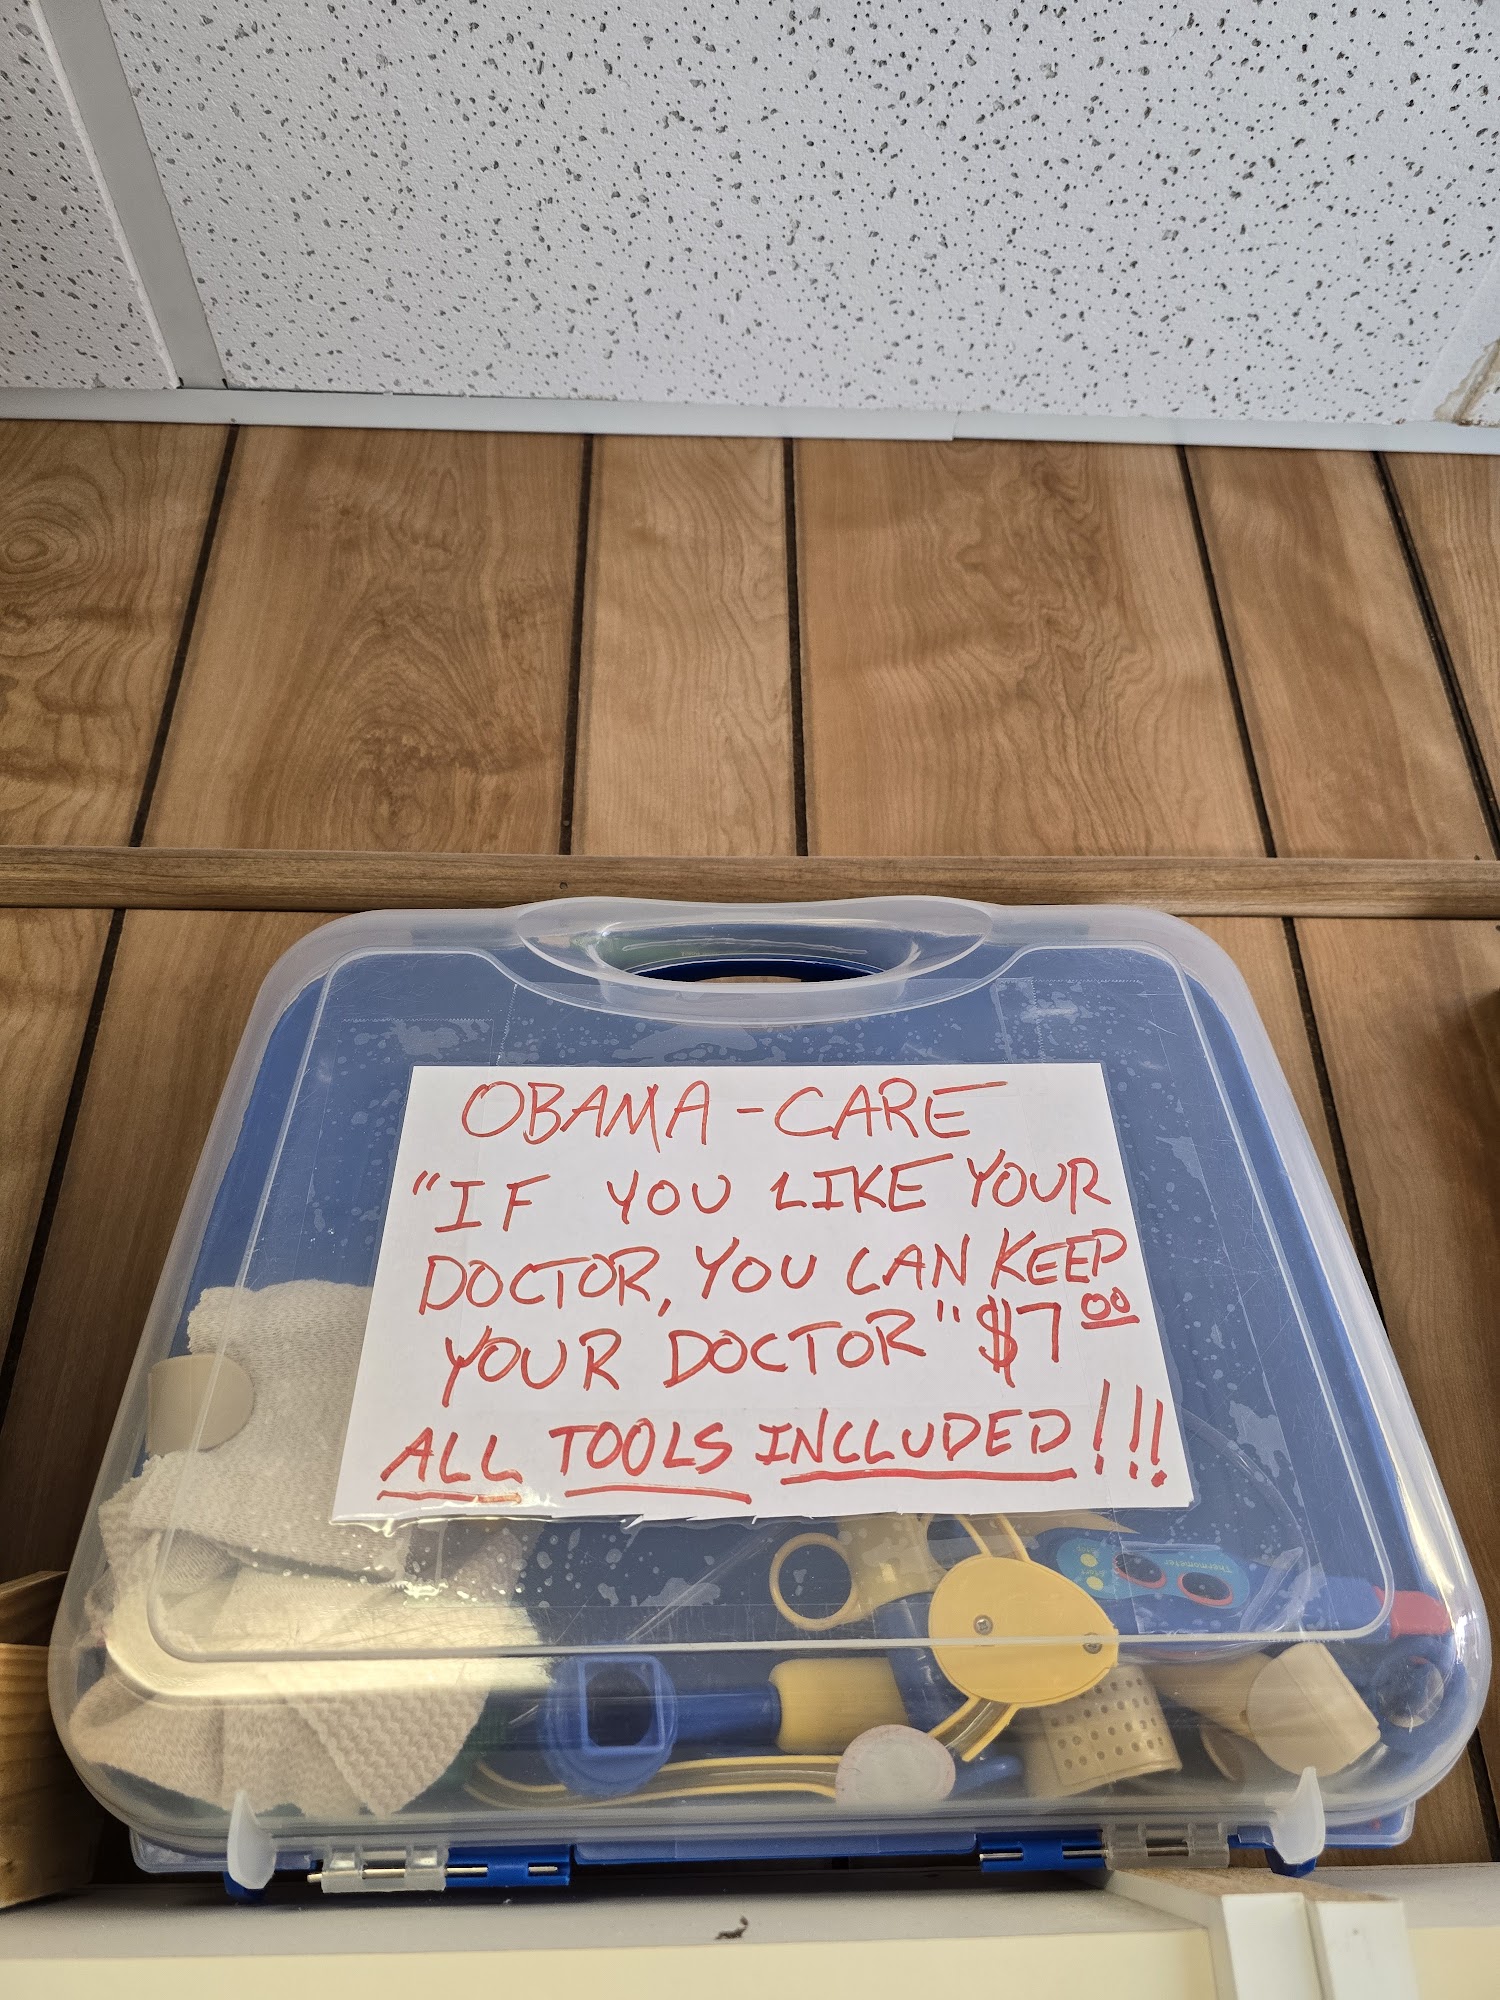 OBAMA-CARE
"IF YOU LIKE YOUR
DOCTOR, YOU CAN KEEP
YOUR DOCTOR" $7 00
ALL TOOLS INCLUDED!!!
Thermometer